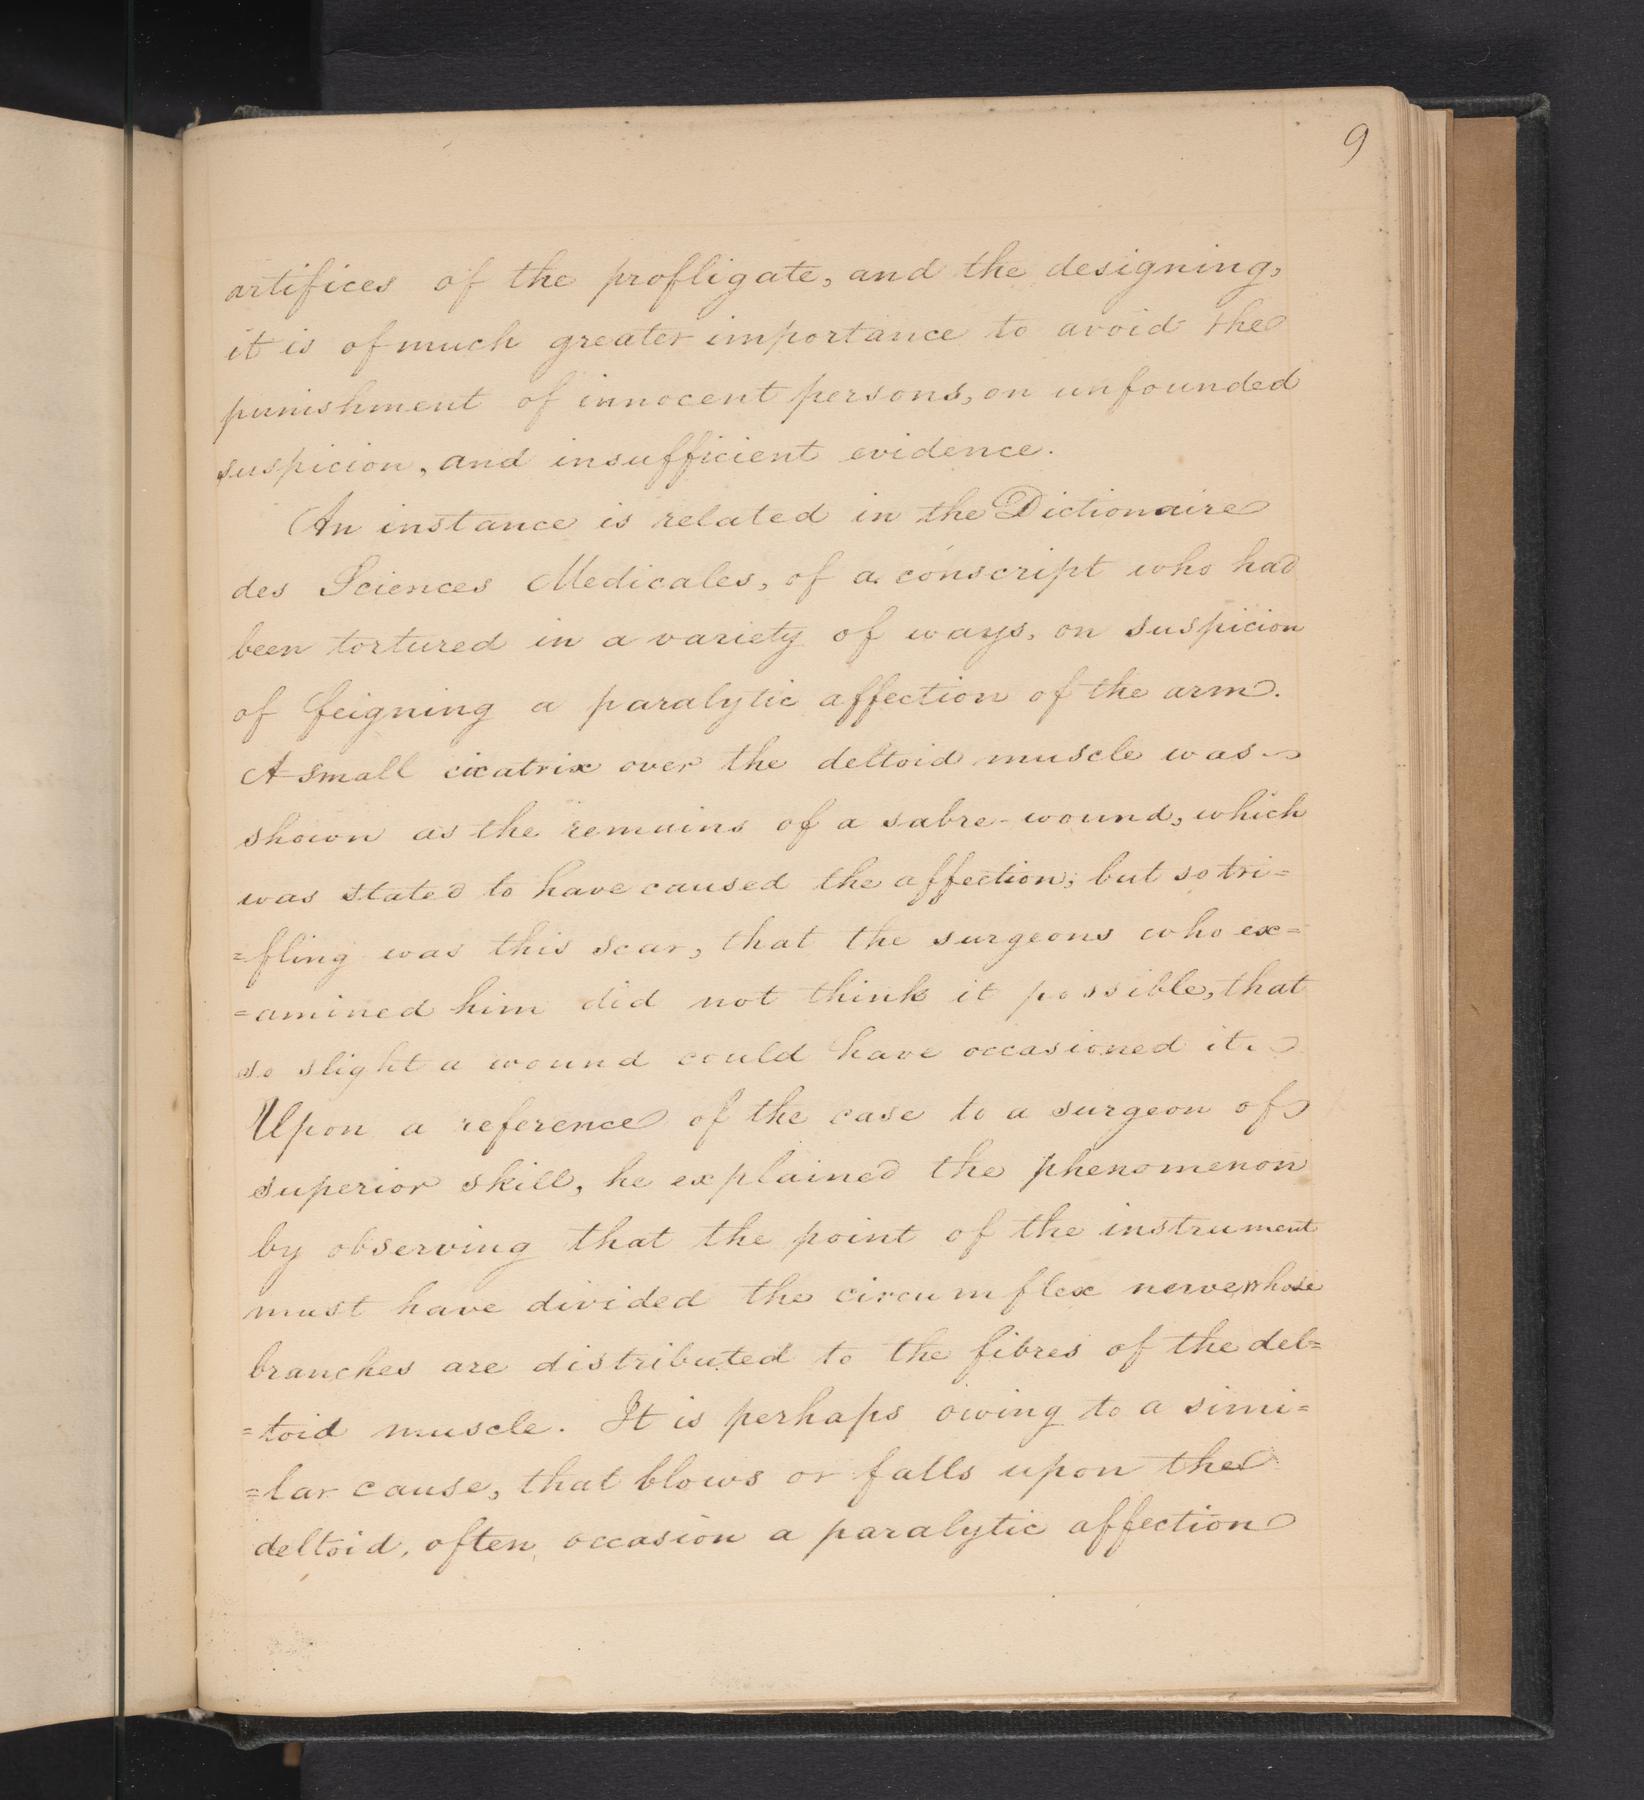 9
artifices of the profligate, and the designing,
it is of much greater importance to avoid the
punishment of innocent persons, on unfounded
suspicion, and insufficient evidence.
An instance is related in the Dictionaire
des Sciences Medicales, of a conscript who had
been tortured in a variety of ways, on suspicion
of feigning a paralytic affection of the arm.
A small cicatrix over the deltoid muscle was
shown as the remains of a sabre-wound, which
was stated to have caused the affection; but so tri=
=fling was this scar, that the surgeons who ex=
=amined him did not think it possible, that
so slight a wound could have occasioned it.
Upon a reference of the case to a surgeon of
superior skill, he explained the phenomenon
by observing that the point of the instrument
must have divided the circumflex nerve whose
branches are distributed to the fibres of the del=
=toid muscle. It is perhaps owing to a simi=
=lar cause, that blows or falls upon the
deltoid, often occasion a paralytic affection